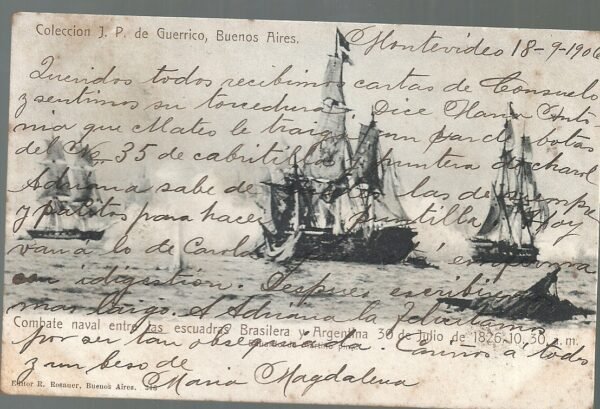 Coleccion J. P. de Guerrico, Buenos Aires.
Montevideo 18-9-1906
Queridos todos recibimos cartas de Consuelo
y sentimos su torcedura. Dice Maria Antó-
nia que Mateo le traiga un par de botas
del Nro 35 de cabritilla puntera charol
Adriana sabe de las de siempre
y palitos para hacer puntilla Hoy
van a lo de Carola
indigestión. Despues escribiré
mas largo. A Adriana la felicitamos
Combate naval entre las escuadras Brasilera y Argentina 30 de Julio de 1826, 10,30 a.m.
por ser tan obsequiada. Cariños a todos
y un beso de
Maria Magdalena
Editor R. Rosauer, Buenos Aires.